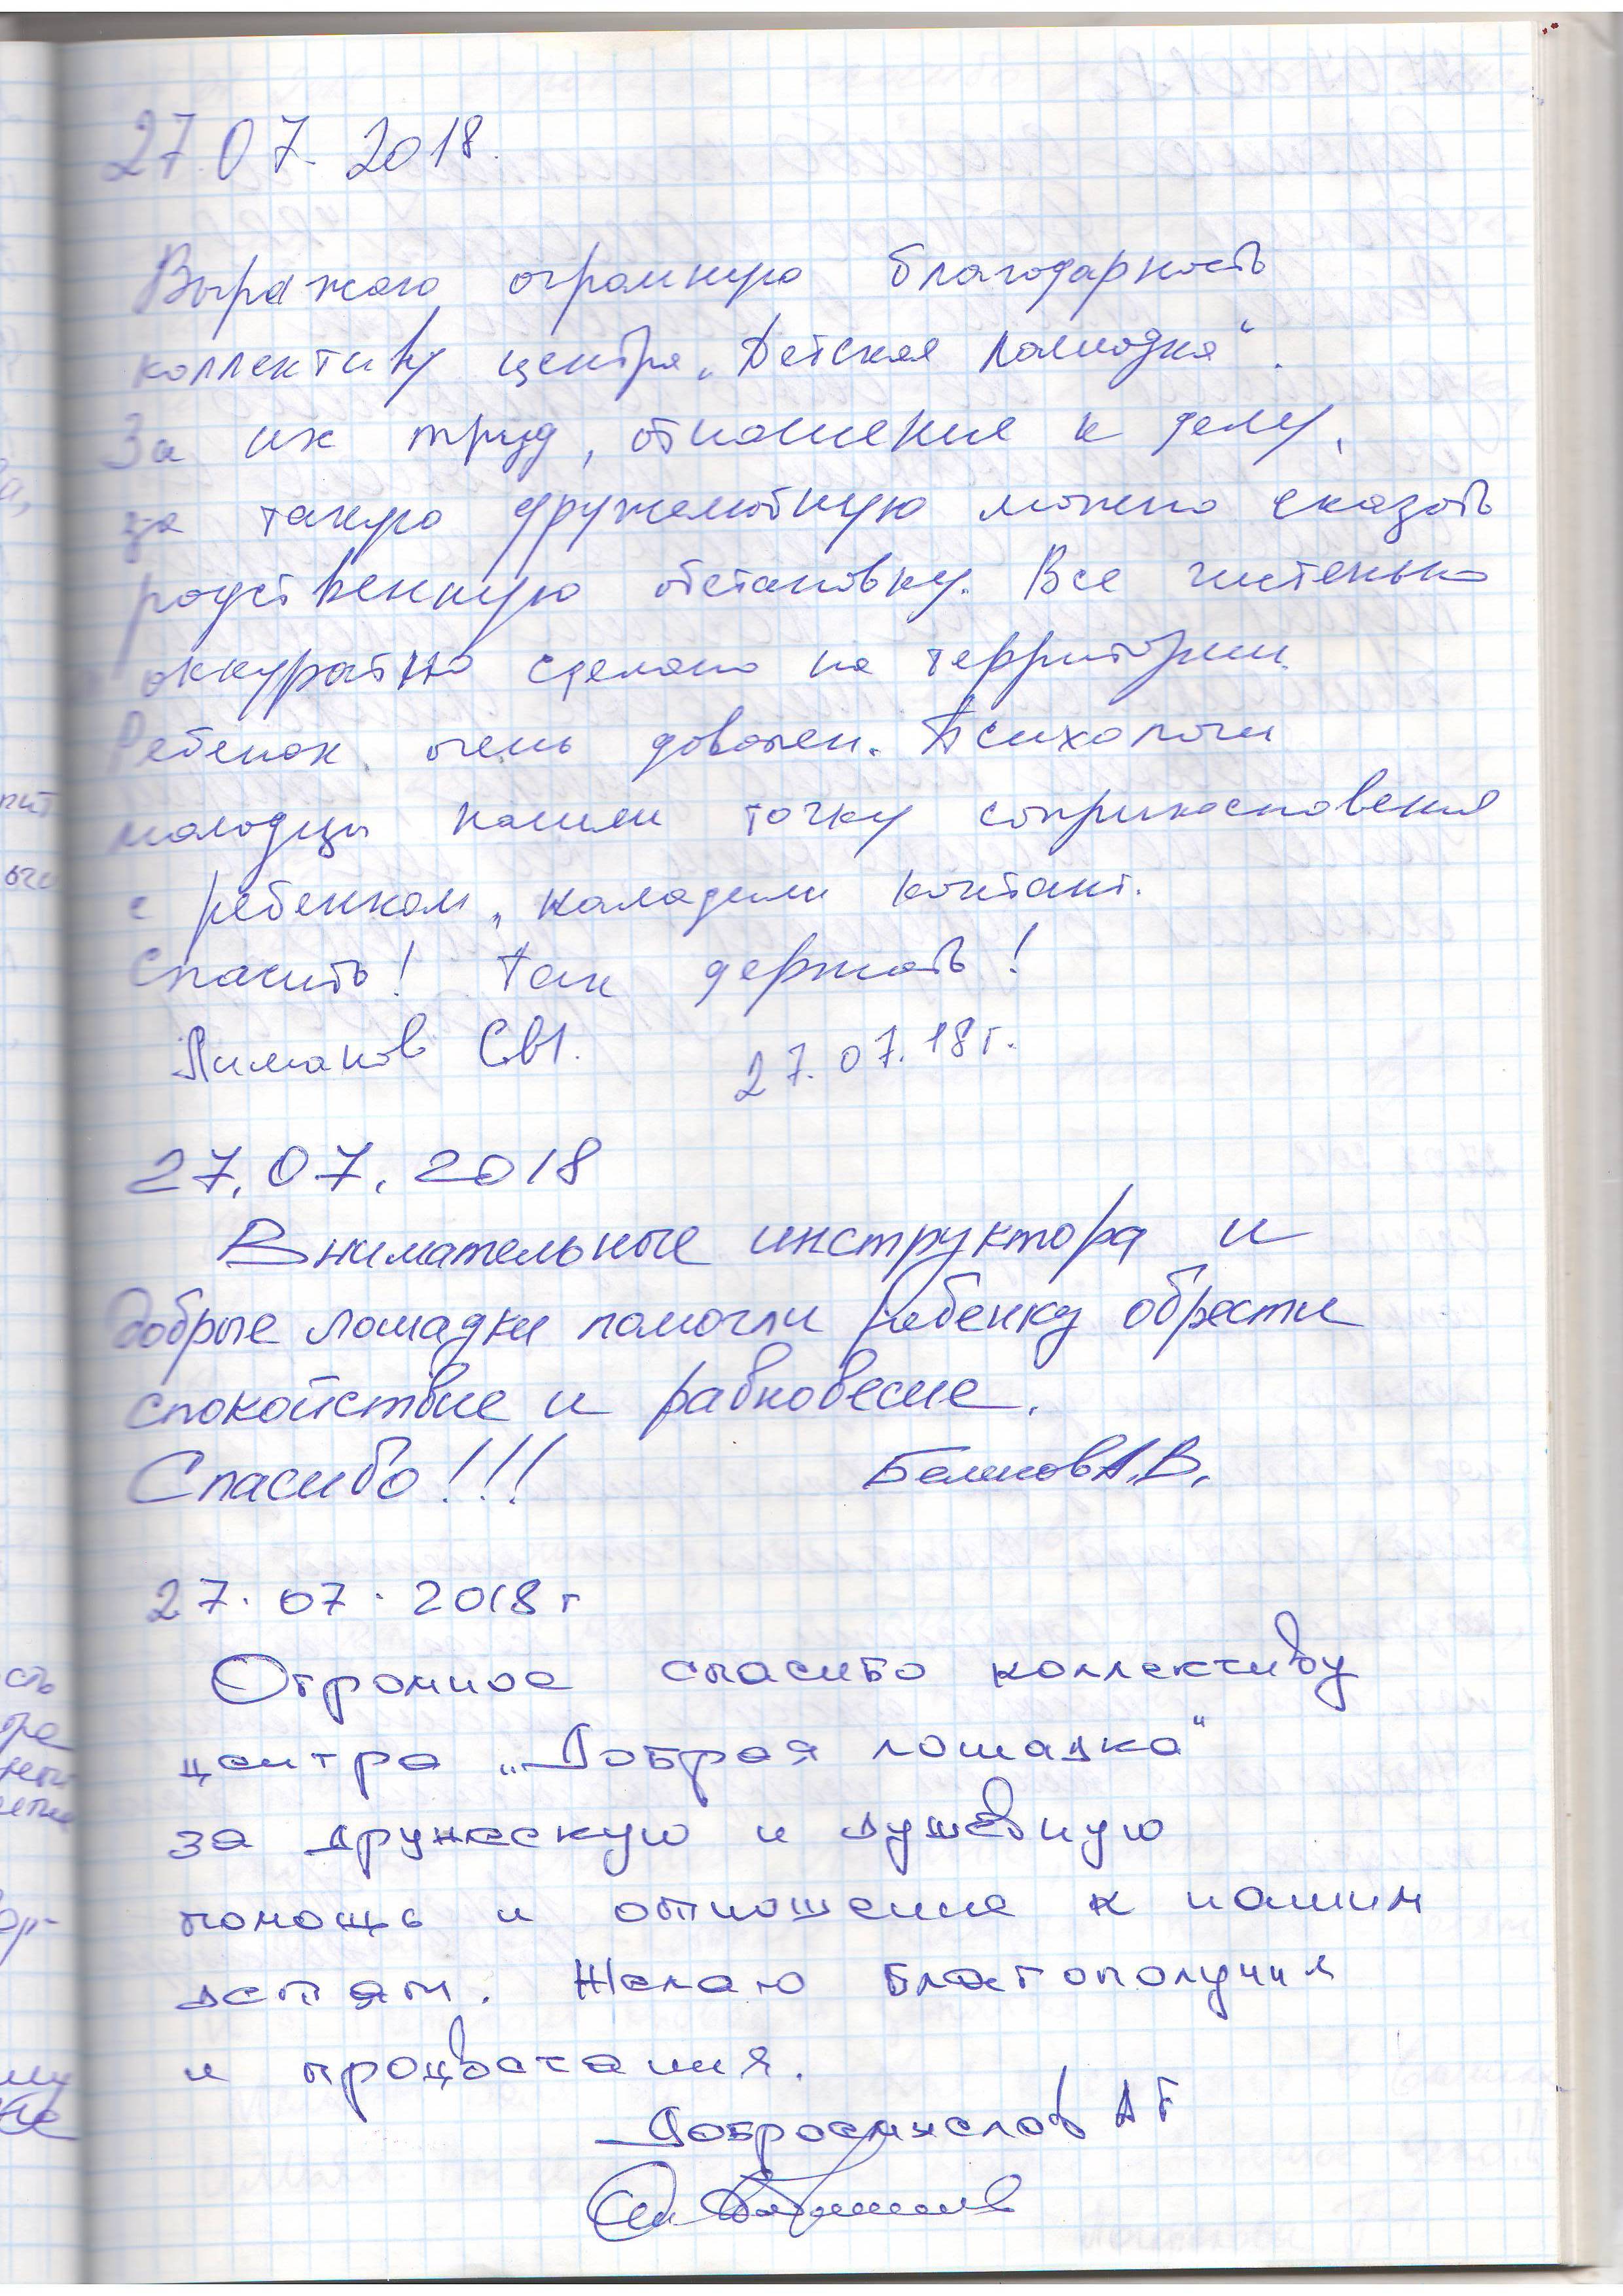 27.07.2018.
Выражаю огромную благодарность
коллективу центра „Детская лошадка“.
За их труд, отношения к делу,
за такую дружелюбную можно сказать
родственную обстановку. Все чистенько
оккуратно сделано на территории.
Ребенок очень доволен. Психологи
молодцы нашли точку соприкосновения
с ребенком, наладили контакт.
Спасибо! Так держать!
Лиманов 27.07.18г.
27.07.2018
Внимательные инструктора и
добрые лошадки помогли ребенку обрести
спокойствие и равновесие.
Спасибо!!! А.В.
27.07.2018г
Огромное спасибо коллективу
центра „Добрая лошадка“
за дружескую и душевную
помощь и отношение к нашим
детям. Желаю благополучия
и процветания.
Добросмыслов АБ